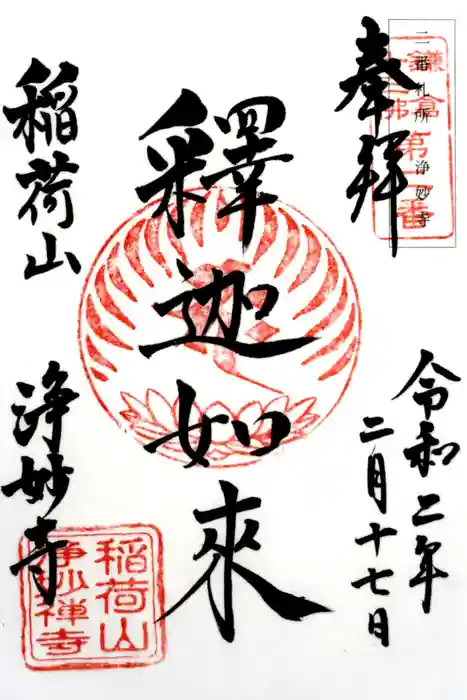 奉拝
二番札所 浄妙寺
鎌倉
十三佛
第二番
釋迦如來
令和二年
二月十七日
稲荷山
浄妙寺
稲荷山
浄妙禅寺